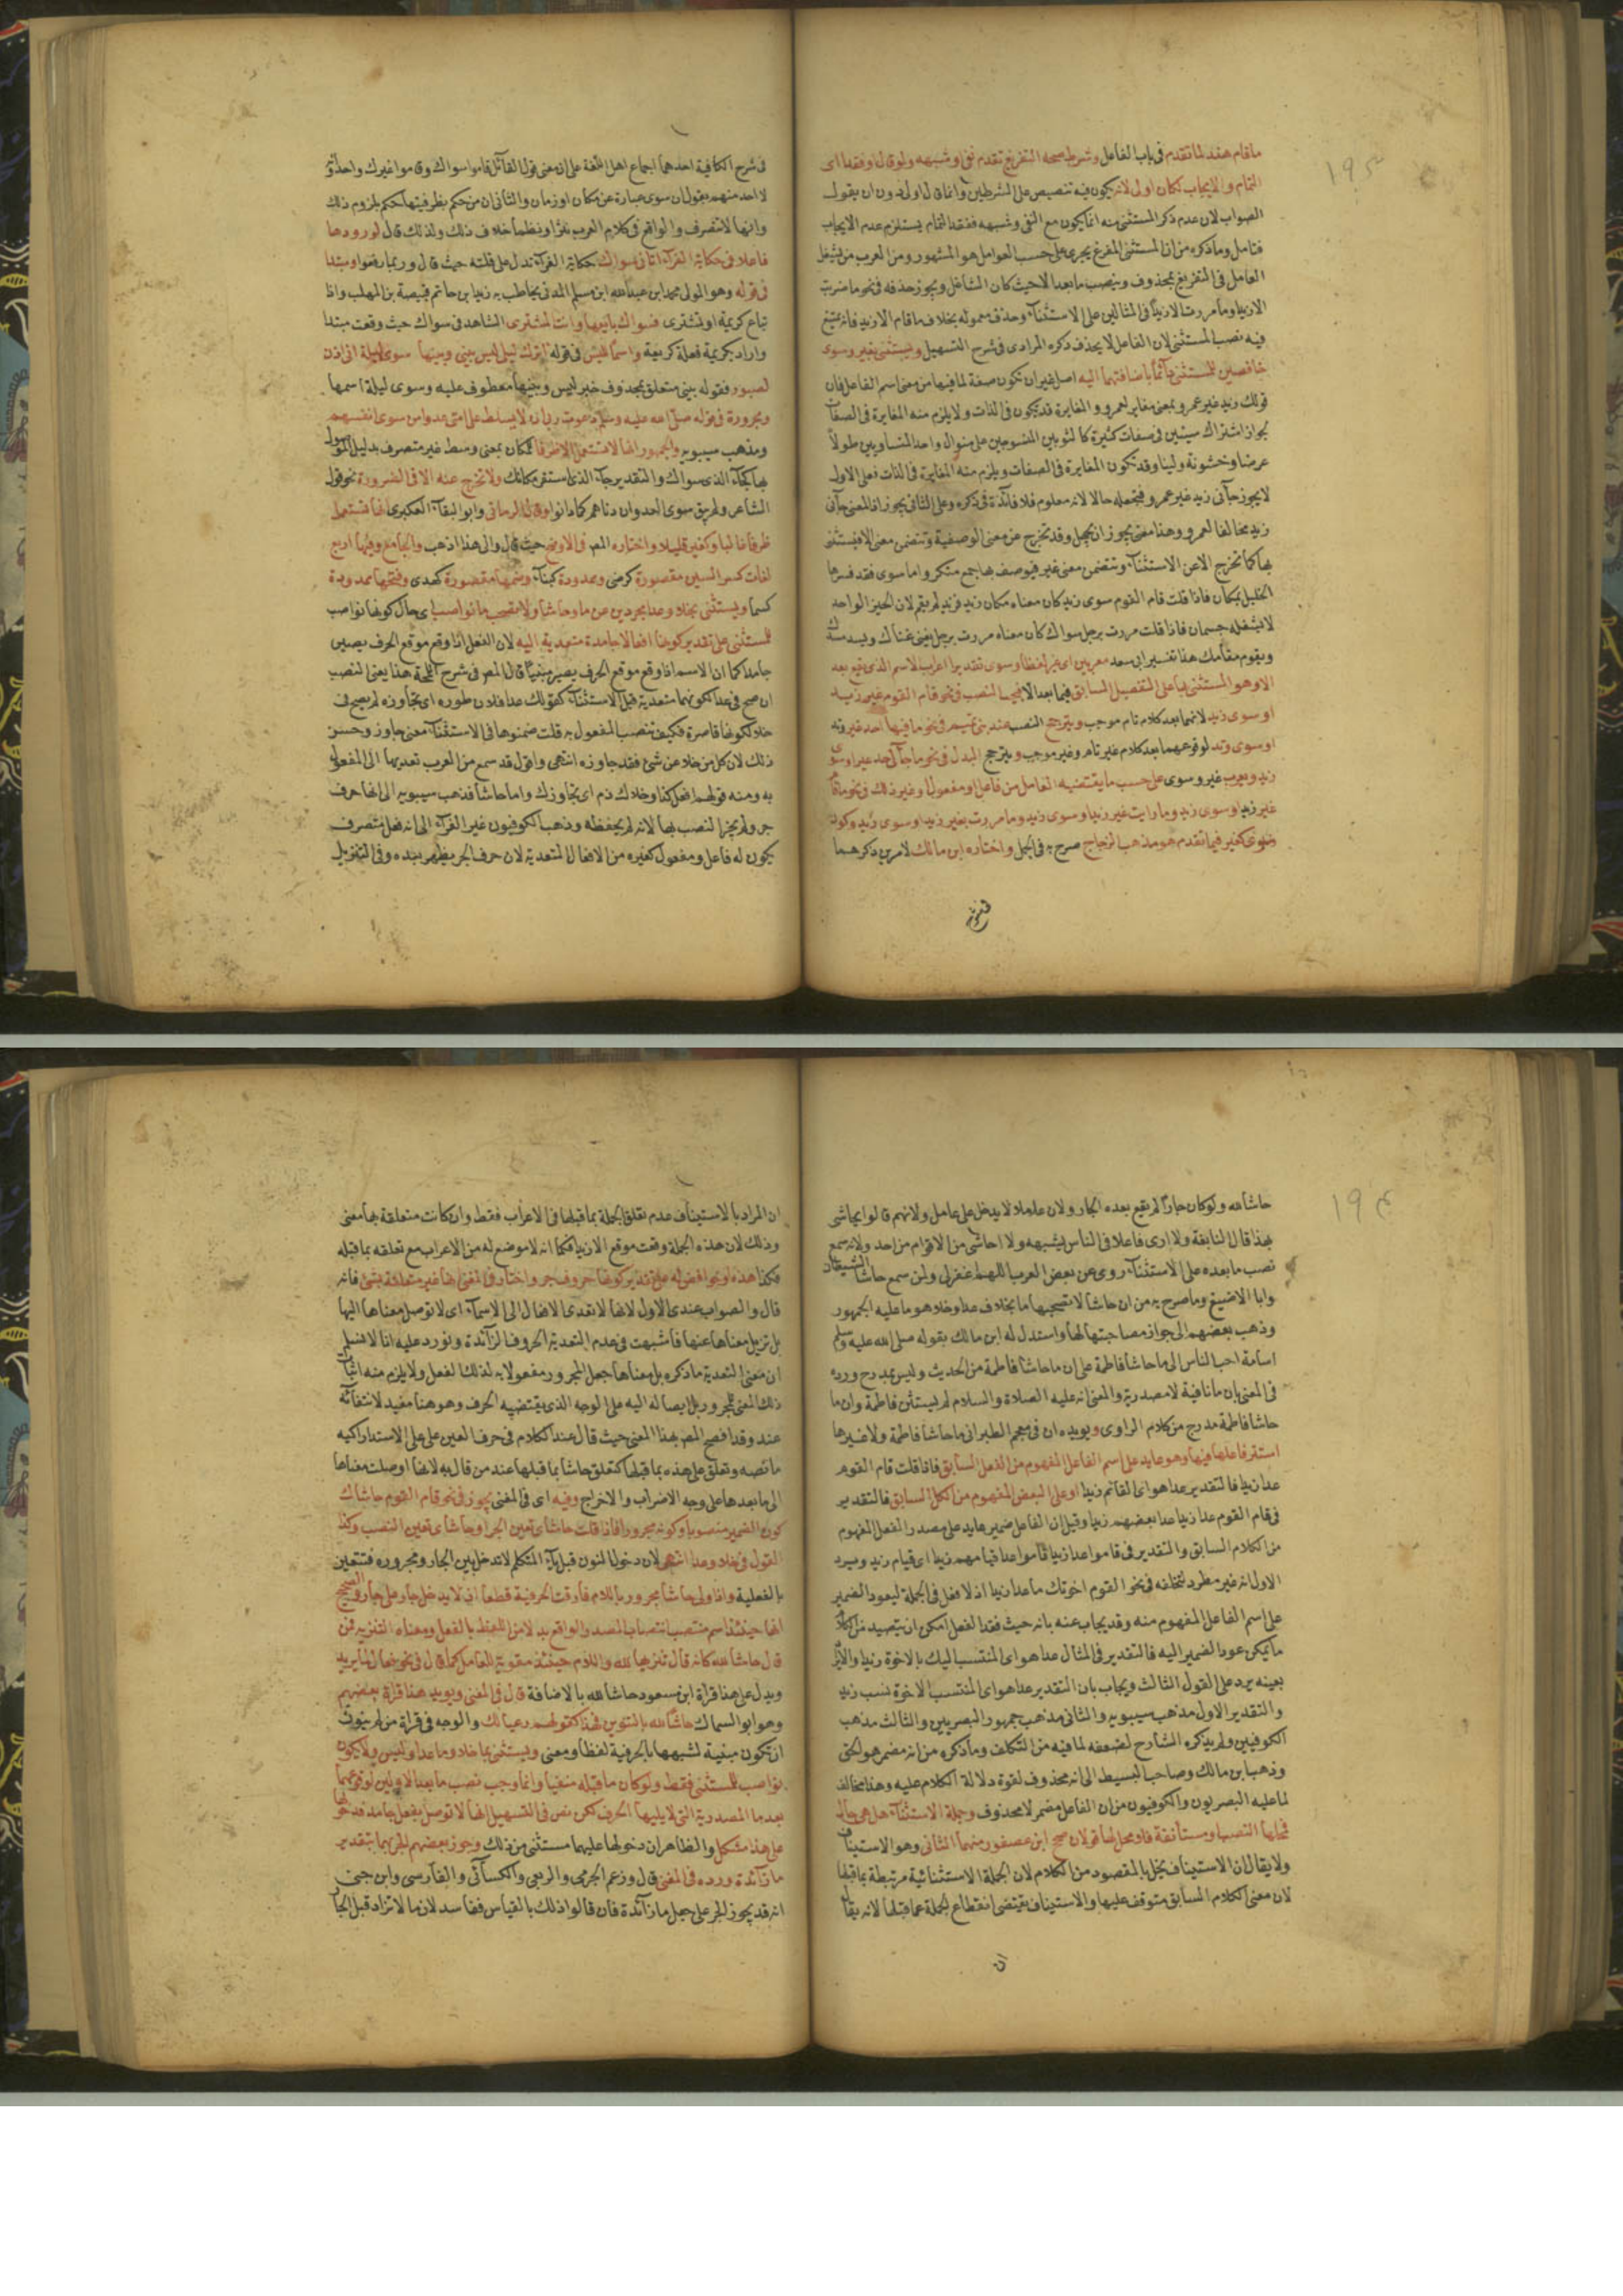 ١٩٣
ما قام هند لما تقدم فى باب الفاعل وشرط صحة التفريغ تقدم نفى او شبهه ولو قال او فقدا اى
التمام والايجاب لكان اولى لانه يكون فيه تنصيص على الشرطين وانما قال اولى دون ان يقول
الصواب لان عدم ذكر المستثنى منه انما يكون مع النفى وشبهه ففقد التمام يستلزم عدم الايجاب
فتامل وما ذكره من ان المستثنى المفرغ يجرى على حسب العوامل هو المشهور ومن العرب من يشغل
العامل فى التفريغ بمحذوف وينصب ما بعد الا حيث كان الشاغل ويجوز حذفه فى نحو ما ضربت
الا زيدا وما مررت الا زيدا فى المثالين على الاستثنآء وحذف معموله بخلاف ما قام الا زيد فانه يمتنع
فيه نصب المستثنى لان الفاعل لا يحذف ذكره المرادى فى شرح التسهيل ويستثنى بغير وسوى
خافضين للمستثنى دآئما باضافتهما اليه اصل غير ان تكون صفة لما فيها من معنى اسم الفاعل فان
قولك زيد غير عمرو بمعنى مغاير لعمرو والمغايرة قد تكون فى الذات ولا يلزم منه المغايرة فى الصفات
لجواز اشتراك سيئين فى صفات كثيرة كالثوبين المنسوجين على منوال واحد المتساويين طولاً
عرضا وخشونة ولينا وقد تكون المغايرة فى الصفات ويلزم منه المغايرة فى الذات فعلى الاول
لا يجوز جآنى زيد غير عمرو فتجعله حالا لانه معلوم فلا فآئدة فى ذكره وعلى الثانى يجوز اذ المعنى جآنى
زيد مخالفا لعمرو وهنا معنى يجوز ان يجهل وقد تخرج عن معنى الوصفية وتتضمن معنى الا فيستثنى
بها كما تخرج الا عن الاستثنآء وتتضمن معنى غير فيوصف بها جمع منكر واما سوى فقد فسرها
الخليل بمكان فاذا قلت قام القوم سوى زيد كان معناه مكان زيد فزيد لم يقم لان الحيز الواحد
لا يشغله جسمان فاذا قلت مررت برجل سواك كان معناه مررت برجل يغنى غناك ويسد مسدك
ويقوم مقامك هذا تفسير ابى سعد معربين اى غير لفظا وسوى تقديرا اعراب لاسم الذى يقع بعد
الا وهو المستثنى بها على التفصيل السابق فيما بعد الا فيجب النصب فى نحو قام القوم غير زيد
او سوى زيد لانهما بعد كلام تام موجب ويترجح النصب عند بنى تميم فى نحو ما فيها احد غير وتد
او سوى وتد لوقوعهما بعد كلام غير تام وغير موجب ويترجح البدل فى نحو ما جآنى احد غير او سوى
زيد ويعرب غير وسوى على حسب ما يقتضيه العامل من فاعل او مفعول او غير ذلك فى نحو ما قام
غير زيد او سوى زيد وما رايت غير زيد او سوى زيد وما مررت بغير زيد او سوى زيد وكون
سوى كغير فيما تقدم هو مذهب الزجاج صرح به فى الجمل واختاره ابن مالك لامرين ذكرهما
فى شرح
فى شرح الكافية احدهما اجماع اهل اللغة على ان معنى قول القآئل قاموا سواك وقاموا غيرك واحد وانه
لا احد منهم يقول ان سوى عبارة عن مكان او زمان والثانى ان من حكم بظرفيتها حكم بلزوم ذلك
وانها لا تتصرف والواقع فى كلام العرب نثرا ونظما خلاف ذلك ولذلك قال لورودها
فاعلا فى حكاية الفرآء اتانى سواك حكاية الفرآء تدل على قلته حيث قال وربما رفعوا ومبتدا
فى قوله وهو المولى محمد ابن عبد الله ابن مسلم المدنى يخاطب به زيد ابن حاتم قبيصة بن المهلب واذا
تباع كريمة او تشترى فسواك بآئعها وانت المشترى الشاهد فى سواك حيث وقعت مبتدا
واراد بكريمة فعلة كريمة واسما لليس فى قوله اترك ليلى ليس بينى وبينها سوى ليلة انى اذن
لصبور فقوله بينى متعلق بمحذوف خبر ليس وبينها معطوف عليه وسوى ليلة اسمها
ومجرورة فى قوله صلى الله عليه وسلم دعوت ربى ان لا يسلط على امتى عدوا من سوى انفسهم
ومذهب سيبويه والجمهور انها لا تستعمل الا ظرفا لمكان بمعنى وسط غير متصرف بدليل الموصول
بها كجآء الذى سواك والتقدير جآء الذى استقر مكانك ولا تخرج عنه الا فى الضرورة نحو قول
الشاعر ولم يبق سوى العدوان دناهم كما دانوا وقال الرمانى وابو البقآء العكبرى انها تستعمل
ظرفا غالبا وكغير قليلا واختاره المص فى الاوضح حيث قال والى هذا اذهب والجامع وفيها اربع
لغات كسر السين مقصورة كرضى وممدودة كبنآء وضمها مقصورة كهدى وفتحها ممدودة
كسما ويستثنى بخلا وعدا مجردين عن ما وحاشا ولا تصحب ما نواصب اى حال كونها نواصب
للمستثنى على تقدير كونها افعالا جامدة متعدية اليه لان الفعل اذا وقع موقع الحرف يصير
جامدا كما ان الاسم اذا وقع موقع الحرف يصير مبنيا قال المص فى شرح اللمحة هذا يعنى النصب
ان صح فى عدا لكونها متعدية قبل الاستثنآء كقولك عدا فلان طوره اى تجاوزه لم يصح فى
خلا لكونها قاصرة فكيف تنصب المفعول به قلت ضمنوها فى الاستثنآء معنى جاوز وحسن
ذلك لان كل من خلا عن شئ فقد جاوزه انتهى واقول قد سمع من العرب تعديها الى المفعول
به ومنه قولهم افعل كذا وخلاك ذم اى تجاوزك واما حاشا فذهب سيبويه الى انها حرف
جر ولم يجز النصب بها لانه لم يحفظه وذهب الكوفيون غير الفرآء الى انه فعل متصرف
يكون له فاعل ومفعول كغيره من الافعال المتعدية لان حرف الجر يظهر بعده وفى التنزيل
١٩٤
حاشا لله ولو كان جارا لم يقع بعده الجار ولان عاملا لا يدخل على عامل ولانهم قالوا يحاشى
بهذا قال النابغة ولا ارى فاعلا فى الناس يشبهه ولا احاشى من الاقوام من احد ولانه سمع
نصب ما بعده على الاستثنآء روى عن بعض العرب اللهم اغفر لى ولمن سمع حاشا الشيطان
وابا الاصبغ وما صرح به من ان حاشا لا تصحبها ما بخلاف عدا وخلا هو ما عليه الجمهور
وذهب بعضهم الى جواز مصاحبتها لها واستدل له ابن مالك بقوله صلى الله عليه وسلم
اسامة احب الناس الى ما حاشا فاطمة على ان ما حاشا فاطمة من الحديث وليس بمدرج ورده
فى المغنى بان ما نافية لا مصدرية والمعنى انه عليه الصلاة والسلام لم يستثن فاطمة وان ما
حاشا فاطمة مدرج من كلام الراوى ويويده ان فى معجم الطبرانى ما حاشا فاطمة ولا غيرها
استتر فاعلها فيها وهو عايد على اسم الفاعل المفهوم من الفعل السابق فاذا قلت قام القوم
عدا زيدا فالتقدير عدا هو اى القائم زيدا او على البعض المفهوم من الكل السابق فالتقدير
فى قام القوم عدا زيدا عدا بعضهم زيدا وقيل ان الفاعل ضمير عايد على مصدر الفعل المفهوم
من الكلام السابق والتقدير فى قاموا عدا زيدا قاموا عدا قيامهم زيدا اى قيام زيد ويرد
الاول انه غير مطرد لتخلفه فى نحو القوم اخوتك ما عدا زيدا اذ لا فعل فى الجملة ليعود الضمير
على اسم الفاعل المفهوم منه وقد يجاب عنه بانه حيث فقد الفعل امكن ان يتصيد من الكلام
ما يمكن عود الضمير اليه فالتقدير فى المثال عدا هو اى المنتسب اليك بالاخوة زيدا والايراد
بعينه يرد على القول الثالث ويجاب بان التقدير عدا هو اى المنتسب الاخوة نسب زيد
والتقدير الاول مذهب سيبويه والثانى مذهب جمهور البصريين والثالث مذهب
الكوفيين ولم يذكره الشارح لضعفه لما فيه من التكلف وما ذكره من انه مضمر هو الحق
وذهب ابن مالك وصاحب البسيط الى انه محذوف لقوة دلالة الكلام عليه وهنا مخالف
لما عليه البصريون والكوفيون من ان الفاعل مضمر لا محذوف وجملة الاستثنآء هل هى حالية
فمحلها النصب او مستأنفة فلا محل لها قولان صحح ابن عصفور منهما الثانى وهو الاستيناف
ولا يقال ان الاستيناف يخل بالمقصود من الكلام لان الجملة الاستثنائية مرتبطة بما قبلها
لان معنى الكلام السابق متوقف عليها والاستيناف يقتضى انقطاع الجملة عما قبلها لانه يقال
ان
ان المراد بالاستيناف عدم تعلق الجملة بما قبلها فى الاعراب فقط وان كانت متعلقة بها معنى
وذلك لان هذه الجملة وقعت موقع الا زيدا فكما انه لا موضع له من الاعراب مع تعلقه بما قبله
فكذا هذه او خوافض له على تقدير كونها حروف جر واختار فى المغنى انها غير متعلقة بشئ فانه
قال والصواب عندى الاول لانها لا تعدى الافعال الى الاسمآء اى لا توصل معناها اليها
بل تزيل معناها عنها فاشبهت فى عدم التعدية الحروف الزآئدة ونورد عليه انا لا نسلم
ان معنى التعدية ما ذكره بل معناها جعل المجرور مفعولا به لذلك الفعل ولا يلزم منه اثبات
ذلك المعنى للمجرور بل ايصاله اليه على الوجه الذى يقتضيه الحرف وهو هنا مفيد لانتفآئه
عنه وقد افصح المص بهذا المعنى حيث قال عند الكلام فى حرف العين على على الاستدراكيه
ما نصه وتعلق على هذه بما قبلها كتعلق حاشا بما قبلها عند من قال به لانها اوصلت معناها
الى ما بعدها على وجه الاضراب والاخراج وفيه اى فى المغنى يجوز فى نحو قام القوم حاشاك
كون الضمير منصوبا وكونه مجرورا فاذا قلت حاشاى تعين الجر او حاشانى تعين النصب وكذا
القول فى خلا وعدا انتهى لان دخول النون قبل يآء المتكلم لا تدخل بين الجار ومجروره فتتعين
الفعلية واذا ولى حاشا مجرور باللام فارقت الحرفية قطعا اذ لا يدخل جار على جار والصحيح
انها حينئذ اسم منتصب انتصاب المصدر الواقع بدلا من اللفظ بالفعل ومعناه التنزيه فمن
قال حاشا لله كانه قال تنزيها لله واللام حينئذ مقوية للعامل كما قال فى نحو فعال لما يريد
ويدل على هذا قرآة ابن مسعود حاشا لله بالاضافة قال فى المغنى ويويد هذا قرآة بعضهم
وهو ابو السماك حاشا لله بالتنوين فهذا كقولهم رعيا لك والوجه فى قرآة من لم ينون
ان تكون مبنية لشبهها بالحرفية لفظا ومعنى ويستثنى بما خلا وما عدا وليس ولا يكون
نواصب للمستثنى فقط ولو كان ما قبله منفيا وانما وجب نصب ما بعد الاولين لوقوعهما
بعد ما المصدرية التى لا يليها الحرف لكن نص فى التسهيل انها لا توصل بفعل جامد فدخولها
على هذا مشكل والظاهر ان دخولها عليهما مستثنى من ذلك وجوز بعضهم الجر بهما بتقدير
ما زآئدة ورده فى المغنى قال وزعم الجرمى والربعى والكسآئى والفآرسى وابن جنى
انه قد يجوز الجر على جعل ما زآئدة فان قالوا ذلك بالقياس ففاسد لان ما لا تزاد قبل الجار